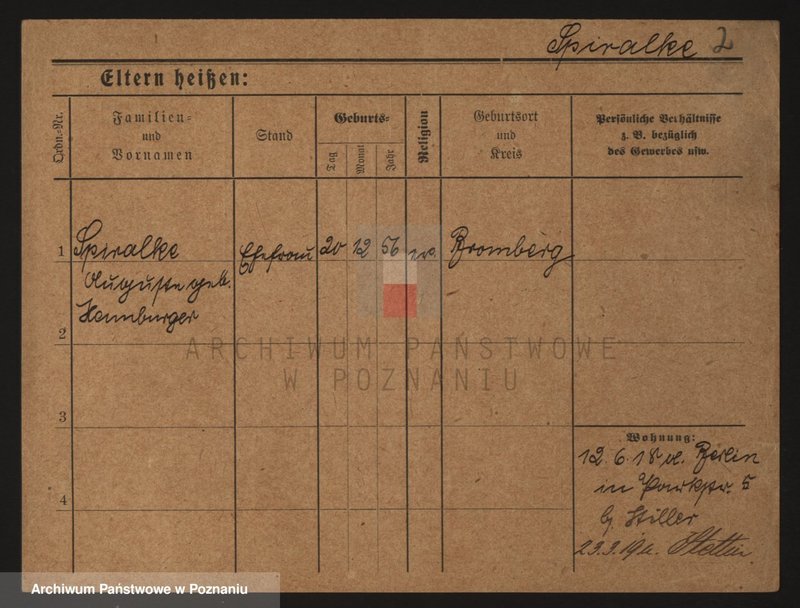 Spiralke 2
Eltern heißen:
Ordn.-Nr.
Familien-
und
Vornamen
Stand
Geburts-
Tag
Monat
Jahr
Religion
Geburtsort
und
Kreis
Persönliche Verhältnisse
z. B. bezüglich
des Gewerbes usw.
1 Spiralke Ehefrau 20 12 56 ev. Bromberg
Auguste geb.
Hamburger
2
3
4
Wohnung:
12.6.18 v. Berlin
in Parkstr. 5
b. Stiller
23.3.19 n. Stettin
ARCHIWUM PAŃSTWOWE
W POZNANIU
Archiwum Państwowe w Poznaniu